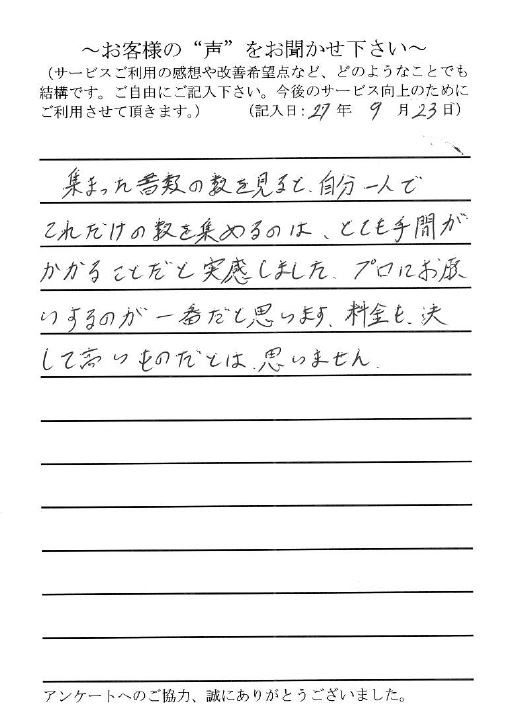 ～お客様の“声”をお聞かせ下さい～
（サービスご利用の感想や改善希望点など、どのようなことでも
結構です。ご自由にご記入下さい。今後のサービス向上のために
ご利用させて頂きます。） （記入日：27年 9月23日）
集まった書類の数を見ると、自分一人で
これだけの数を集めるのは、とても手間が
かかることだと実感しました。プロにお願
いするのが一番だと思います。料金も、決
して高いものだとは、思いません。
アンケートへのご協力、誠にありがとうございました。